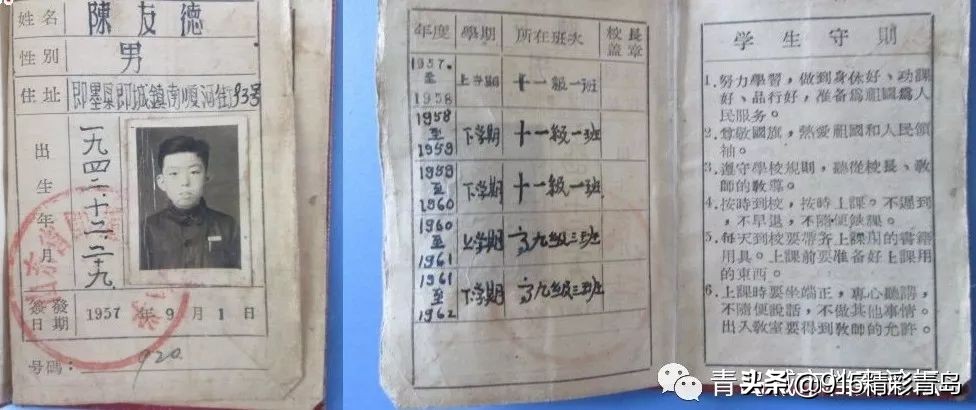 姓名 陳友德
性別 男
住址 即墨縣即城鎮南順河街93号
出生年月 一九四二.十二.二十九
簽發日期 1957年9月1日
号碼: 920
年度 學期 所在班次 校長蓋章
1957.至1958 上学期 十一級一班
1958至1959 下学期 十一級一班
1959至1960 下学期 十一級一班
1960至1961 上学期 高九级三班
1961至1962 下学期 高九级三班
學生守則
1.努力學習，做到身体好、功課
好、品行好，准备爲祖國爲人
民服务。
2.尊敬國旗，熱愛祖國和人民領
袖。
3.遵守學校規則，聽從校長、教
師的教導。
4.按時到校，按時上課。不遲到
，不早退，不隨便缺課。
5.每天到校要帶齐上課用的書籍
用具。上課前要准备好上課用
的東西。
6.上課時要坐端正，專心聽講，
不隨便說話，不做其他事情。
出入教室要得到教師的允許。
头条 @915精彩青岛